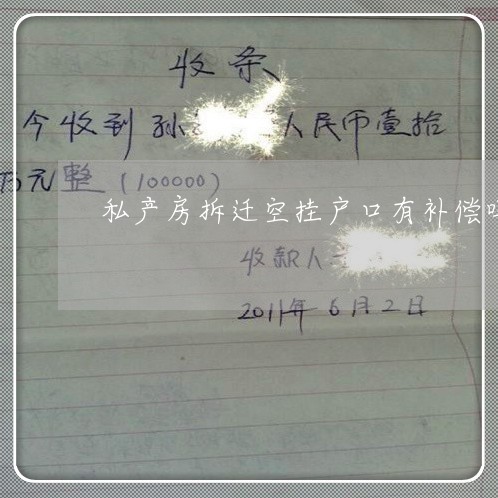 收条
今收到孙 人民币壹拾
万元整(100000)
私产房拆迁空挂户口有补偿吗
收款人
2011年6月2日